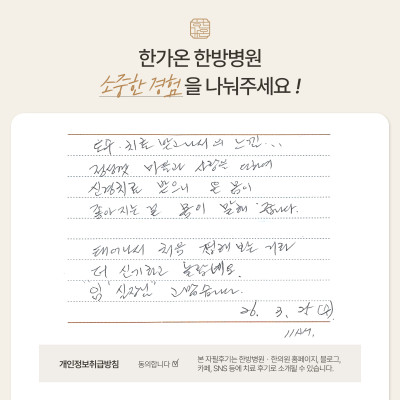 한가온 한방병원
소중한 경험을 나눠주세요!
도수치료 받고나서의 느낌...
정성껏 마음과 사랑을 다하여
신경치료 받으니 온 몸이
좋아지는 걸 몸이 말해 줍니다.
태어나서 처음 접해 보는 거라
더 신기하고 놀랍네요.
"임" 실장님" 고맙습니다.
26. 3. 25 (수).
개인정보취급방침
동의합니다
본 자필후기는 한방병원 · 한의원 홈페이지, 블로그,
카페, SNS 등에 치료 후기로 소개될 수 있습니다.